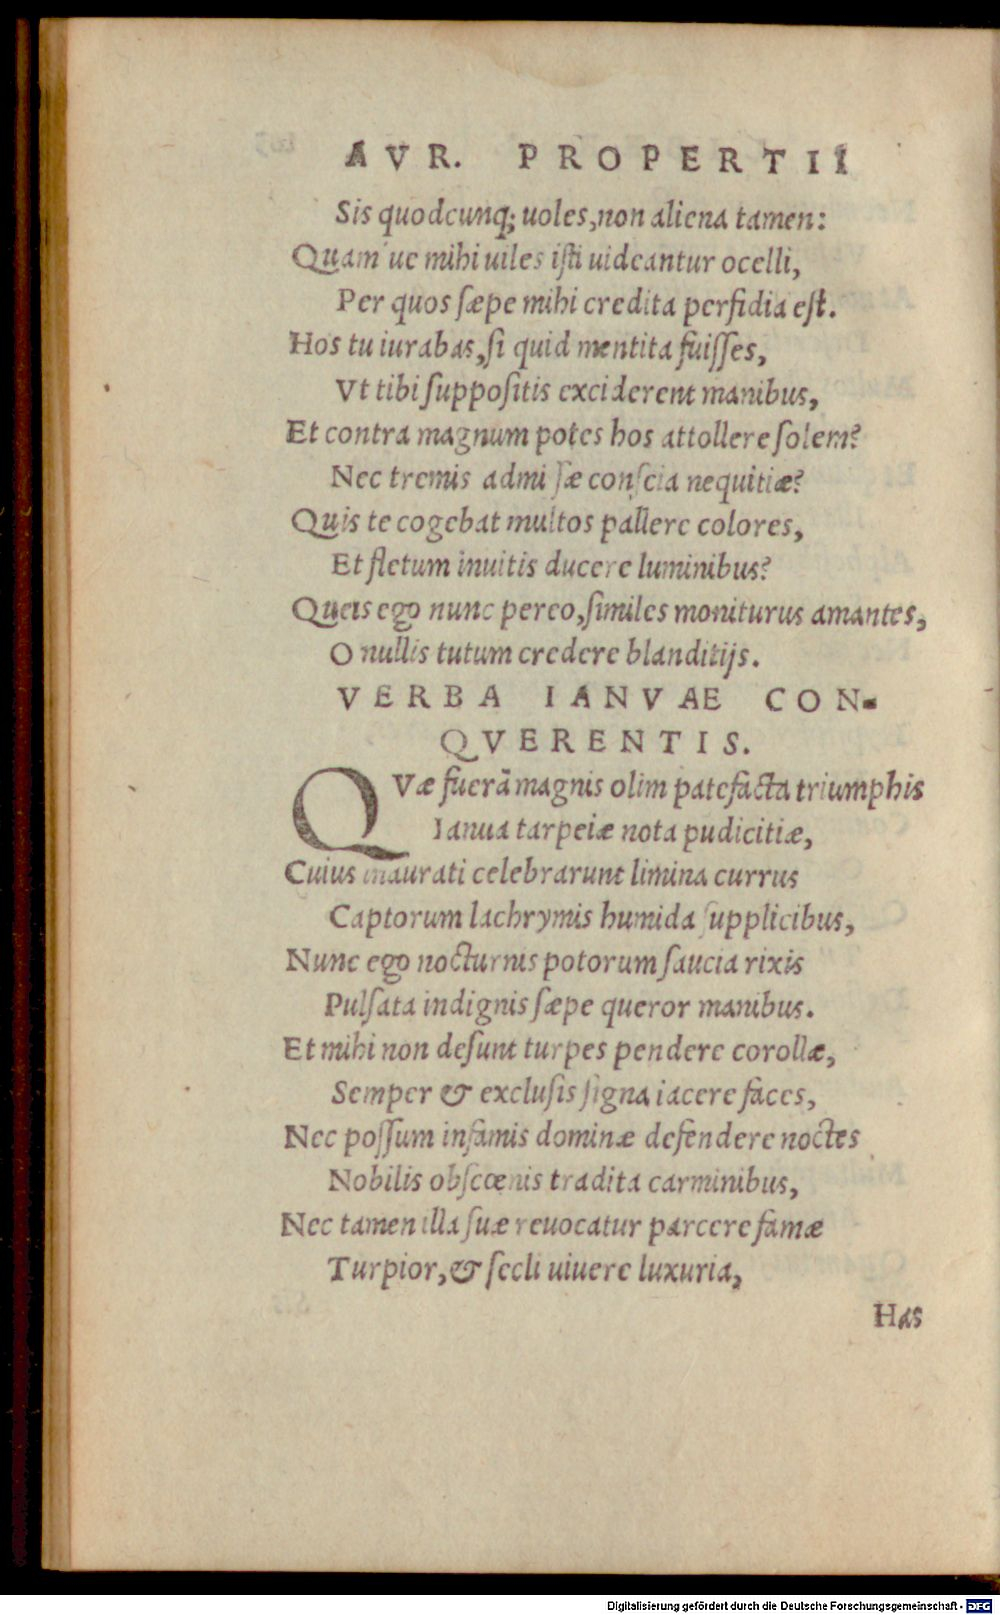 AVR. PROPERTII
Sis quodcunq; uoles, non aliena tamen:
Quam ue mihi uiles isti uideantur ocelli,
Per quos sæpe mihi credita perfidia est.
Hos tu iurabas, si quid mentita fuisses,
Vt tibi suppositis exciderent manibus,
Et contra magnum potes hos attollere solem?
Nec tremis admissæ conscia nequitiæ?
Quis te cogebat multos pallere colores,
Et fletum inuitis ducere luminibus?
Queis ego nunc pereo, similes moniturus amantes,
O nullis tutum credere blanditijs.
VERBA IANVAE CON-
QVERENTIS.
QVæ fuerã magnis olim patefacta triumphis
Ianua tarpeiæ nota pudicitiæ,
Cuius inaurati celebrarunt limina currus
Captorum lachrymis humida supplicibus,
Nunc ego nocturnis potorum saucia rixis
Pulsata indignis sæpe queror manibus.
Et mihi non desunt turpes pendere corollæ,
Semper & exclusis signa iacere faces,
Nec possum infamis dominæ defendere noctes
Nobilis obscœnis tradita carminibus,
Nec tamen illa suæ reuocatur parcere famæ
Turpior, & secli uiuere luxuria,
Has
Digitalisierung gefördert durch die Deutsche Forschungsgemeinschaft - DFG